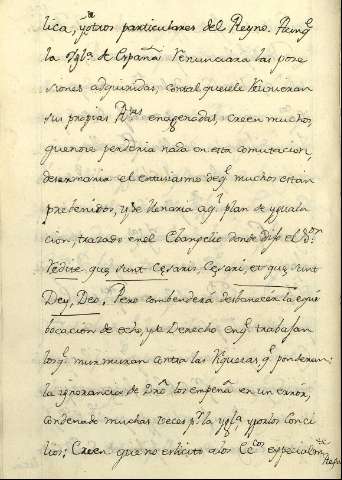 lica, y otros particulares del Reyno. Aunq.e
la Ygl.a de España renunciara las pose
siones adquiridas, contal quesele reunieran
sus propias R.tas enagenadas: creen muchos
quenove perderia nada en esta comutacion,
desarmaria el entusiasmo deq.e muchos estan
prebenidos, y se llenaria aq.l plan de ygualа
cion, trazado enel Ebangelio donde dijo el S.or
redite que sunt Cesaris, Cesari, et que sunt
Dey, Deo. Pero combendera desbanecer la equi
bocacion de echo, y de Derecho en q.e trabajan
los q.e murmuran contra las riquezas q.e ponderan:
la ignorancia de Dro los empeña en un error,
condenado muchas veces p.r la ygl.a y porlos Conci
lios: Creen que no eslicito alos Ec.cos especialm.te